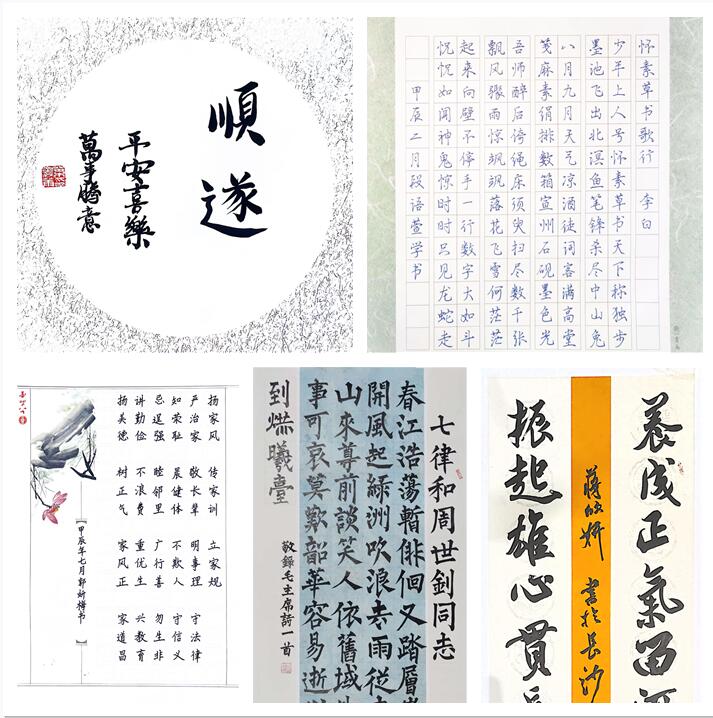 順遂
平安喜樂
萬事勝意
怀素草书歌行 李白
少年上人号怀素草书天下称独步
墨池飞出北溟鱼笔锋杀尽中山兔
八月九月天气凉酒徒词客满高堂
笺麻素绢排数箱宣州石砚墨色光
吾师醉后倚绳床须臾扫尽数千张
飘风骤雨惊飒飒落花飞雪何茫茫
起来向壁不停手一行数字大如斗
恍恍如闻神鬼惊时时只见龙蛇走
甲辰二月段语萱学书
扬家风 传家训 立家规
严治家 敬长辈 明事理 守法律
知荣耻 晨健体 不欺人 守信义
忌逞强 睦邻里 广行善 勿生非
讲勤俭 不浪费 重优生 兴教育
扬美德 树正气 家风正 家道昌
【甲辰年七月郭新书】
七律和周世釗同志
春江浩蕩暫徘徊又踏層
開風起綠洲吹浪去雨從
山來尊前談笑人依舊域
事可哀莫歎韶華容易逝
到爀曦臺
敬錄毛主席詩一首
養成正氣留河
振起雄心貫
蔣欣妍 書於長沙